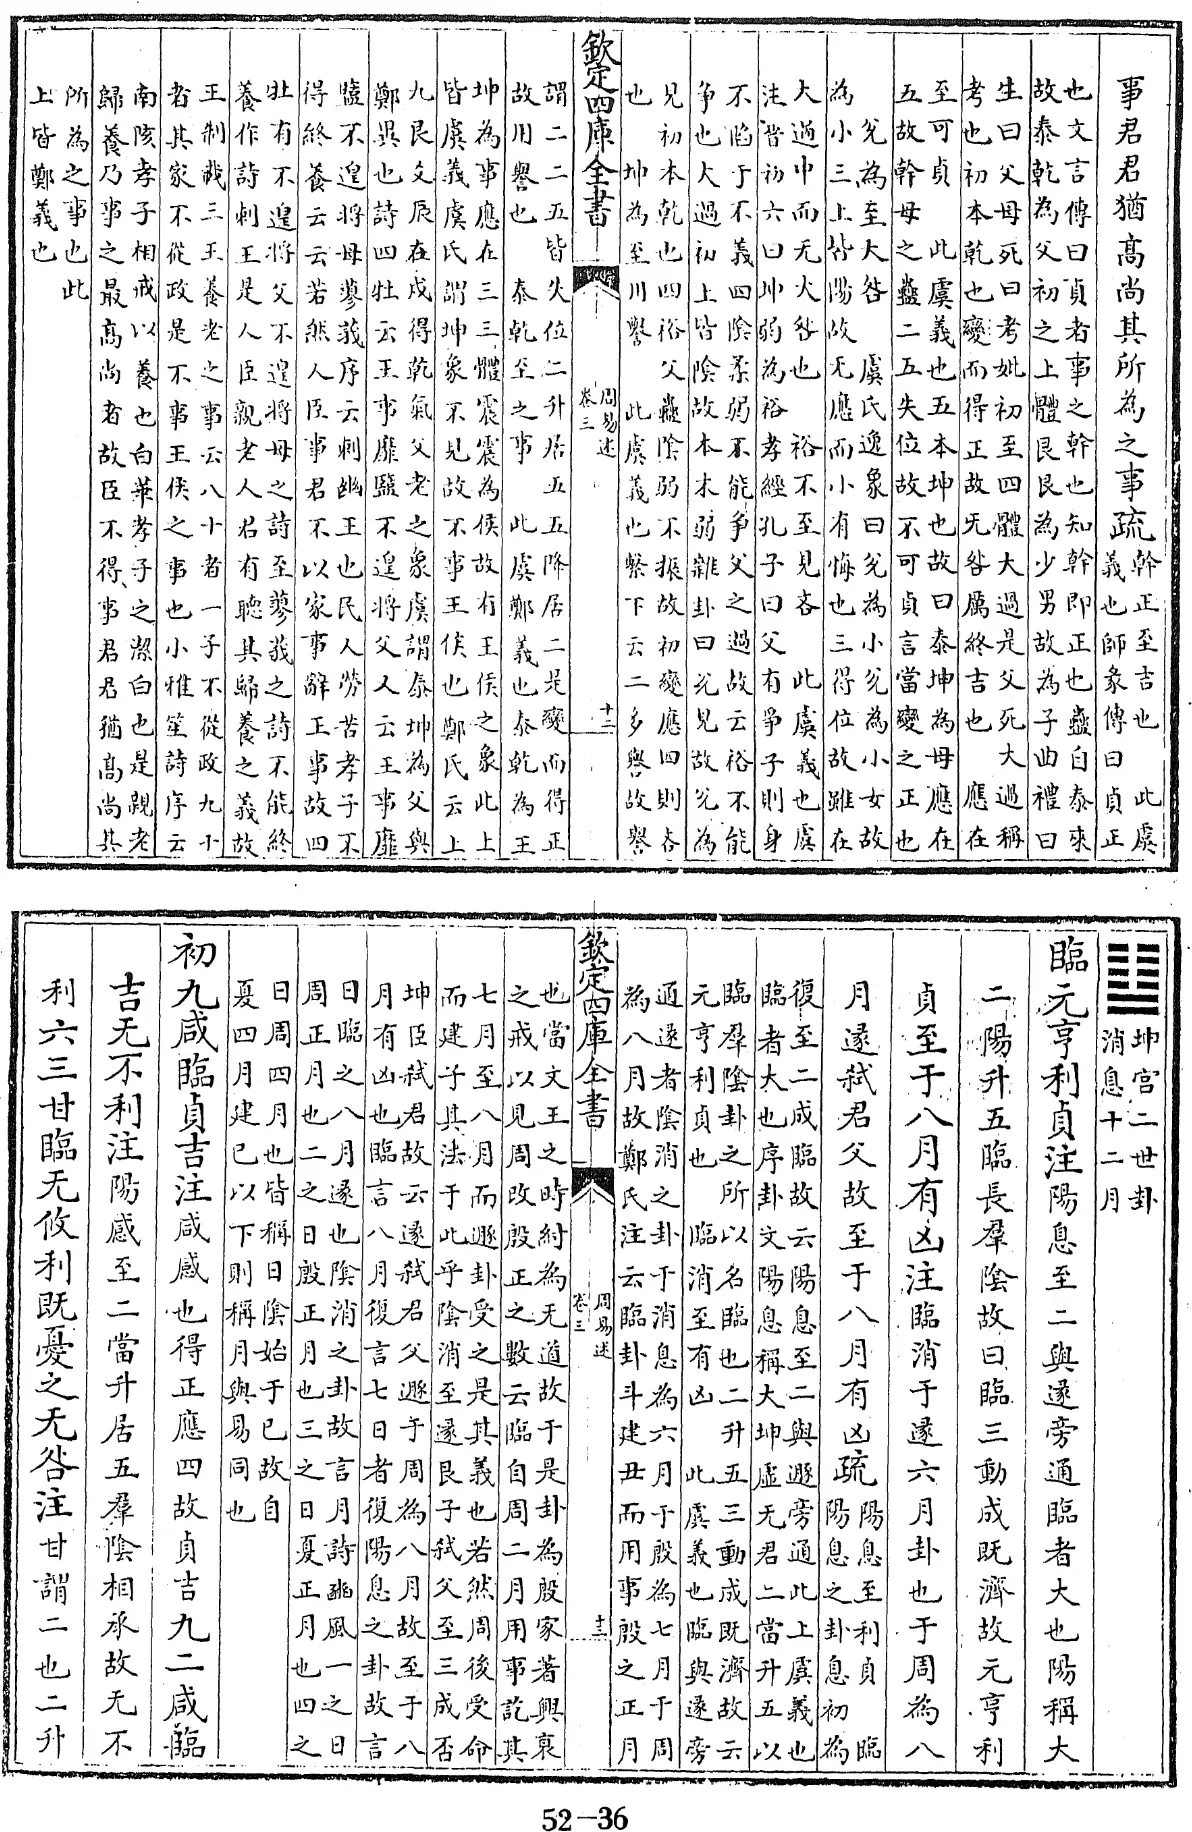 事君君猶髙尚其所為之事疏幹正至吉也　此虞
義也師彖傳曰貞正
也文言傳曰貞者事之幹也知幹即正也蠱自泰來
故泰乾為父初之上體艮艮為少男故為子曲禮曰
生曰父母死曰考妣初至四體大過是父死大過稱
考也初本乾也變而得正故无咎厲終吉也　應在
至可貞　此虞義也五本坤也故曰泰坤為母應在
五故幹母之蠱二五失位故不可貞言當變之正也
兊為至大咎　虞氏逸象曰兊為小兊為小女故
為小三上皆陽故无應而小有悔也三得位故雖在
大過中而无大咎也　裕不至見吝　此虞義也虞
注晉初六曰坤弱為裕孝經孔子曰父有爭子則身
不䧟于不義四隂柔弱不能爭父之過故云裕不能
爭也大過初上皆隂故本末弱雜卦曰兊見故兊為
見初本乾也四裕父蠱隂弱不振故初變應四則吝
也　坤為至用譽　此虞義也繫下云二多譽故譽
欽定四庫全書
周易述
卷三
十二
謂二二五皆失位二升居五五降居二是變而得正
故用譽也　泰乾至之事　此虞鄭義也泰乾為王
坤為事應在三三體震震為侯故有王侯之象此上
皆虞義虞氏謂坤象不見故不事王侯也鄭氏云上
九艮爻辰在戌得乾氣父老之象虞謂泰坤為父與
鄭異也詩四牡云王事靡盬不遑將父人云王事靡
盬不遑將母蓼莪序云刺幽王也民人勞苦孝子不
得終養云云若然人臣事君不以家事辭王事故四
牡有不遑將父不遑將母之詩至蓼莪之詩不能終
養作詩刺王是人臣親老人君有聽其歸養之義故
王制載三王養老之事云八十者一子不從政九十
者其家不從政是不事王侯之事也小雅笙詩序云
南陔孝子相戒以養也白華孝子之潔白也是親老
歸養乃事之最髙尚者故臣不得事君君猶髙尚其
所為之事也此
上皆鄭義也
坤宫二世卦
消息十二月
臨元亨利貞注陽息至二與遂旁通臨者大也陽稱大
二陽升五臨長羣隂故曰臨三動成既濟故元亨利
貞至于八月有凶注臨消于遂六月卦也于周為八
月遂弒君父故至于八月有凶疏陽息至利貞　臨
陽息之卦息初為
復至二成臨故云陽息至二與遯旁通此上虞義也
臨者大也序卦文陽息稱大坤虛无君二當升五以
臨羣隂卦之所以名臨也二升五三動成既濟故云
元亨利貞也　臨消至有凶　此虞義也臨與遂旁
通遂者隂消之卦于消息為六月于殷為七月于周
為八月故鄭氏注云臨卦斗建丑而用事殷之正月
欽定四庫全書
周易述
卷三
十三
也當文王之時紂為无道故于是卦為殷家著興衰
之戒以見周改殷正之數云臨自周二月用事訖其
七月至八月而遯卦受之是其義也若然周後受命
而建子其法于此乎隂消至遂艮子弒父至三成否
坤臣弒君故云遂弒君父遯于周為八月故至于八
月有凶也臨言八月復言七日者復陽息之卦故言
日臨之八月遂也隂消之卦故言月詩豳風一之日
周正月也二之日殷正月也三之日夏正月也四之
日周四月也皆稱日隂始于已故自
夏四月建已以下則稱月與易同也
初九咸臨貞吉注咸感也得正應四故貞吉九二咸臨
吉无不利注陽感至二當升居五羣隂相承故无不
利六三甘臨无攸利既憂之无咎注甘謂二也二升
52—36